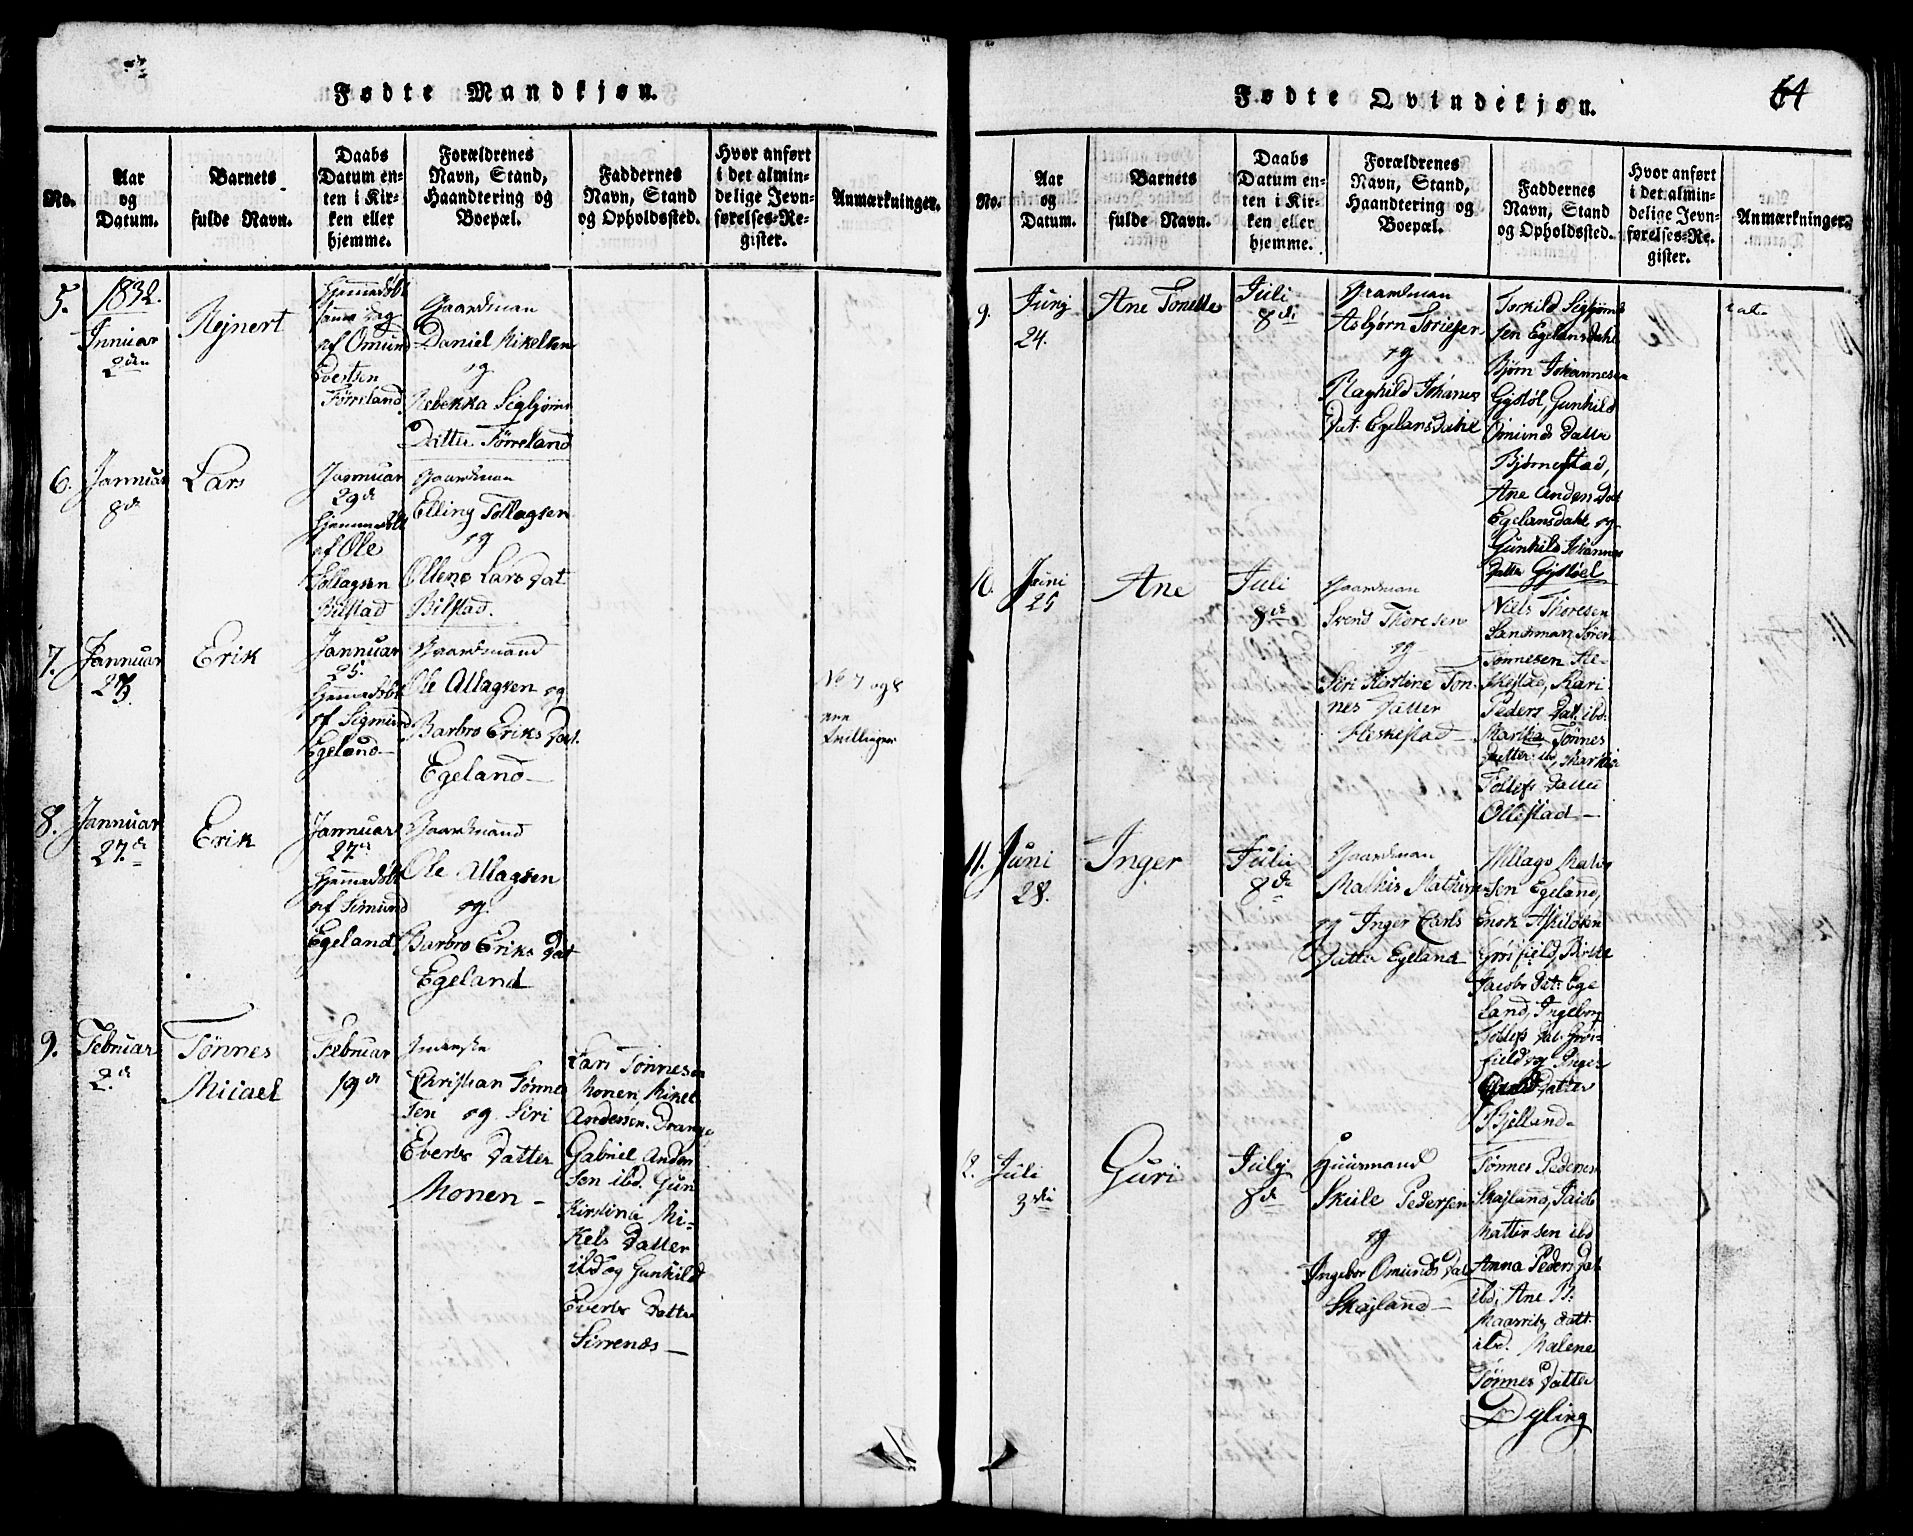 Fødte Mandkjøn.
No.
Aar
og
Datum.
Barnets
fulde Navn.
Daabs
Datum en-
ten i Kir-
ken eller
hjemme.
Forældrenes
Navn, Stand,
Haandtering og
Boepæl.
Faddernes
Navn, Stand
og Opholdssted.
Hvor anført
i det almin-
delige Jevn-
førelses-Re-
gister.
Anmærkninger.
5.
1832.
Rejnert
Hjemmedøbt
samme dag
af Omund
Evertsen
Tørreland
Gaardman
Daniel Mikelsen
og
Rebekka Sigbjørns
Datter Tørreland
6.
Januar
8de
Lars
Januar
29de
Hjemmedøbt
af Ole
Tollagsen
Bilstad
Gaardman
Elling Tollagsen
og
Ollene Lars Dat
Bilstad.
7.
Januar
Erik
Januar
25.
Hjemmedøbt
af Sigmund
Egeland
Gaardmand
Ole Allagsen og
Barbro Eriks Dat.
Egeland
No 7 og 8
ere
Tvillinger
8.
Januar
27.de
Erik
Januar
27de
Hjemmedøbt
af Simund
Egeland
Gaardmand
Ole Allagsen
og
Barbro Eriks Dat
Egeland
9.
Februar
2.de
Tønnes
Micael
Februar
19de
Inderste
Christian Tønnes
sen og Siri
Everts Datter
Monen
Lars Tønnesen
Monen, Mikel
Andersen Drange
Gabriel Ander
sen ibd. Gun
Kirstina Mi-
kels Datter
ibd og Gunhild
Everts Datter
Sirenes
Fødte Qvindekjøn.
64
No.
Aar
og
Datum.
Barnets
fulde Navn.
Daabs
Datum en-
ten i Kir-
ken eller
hjemme.
Forældrenes
Navn, Stand,
Haandtering og
Boepæl.
Faddernes
Navn, Stand
og Opholdssted.
Hvor anført
i det almin-
delige Jevn-
førelses-Re-
gister.
Anmærkninger.
9.
Junj
24.
Ane Tonette
Juli
8de
Gaardman
Asbjørn
og
Raghild Johanes
Dat. Egelansdahl
Torkild Sigbjørn
sen Egelansdahl
Bjørn Johannesen
Gystøl, Gunhild
Omunds Datter
Bjørnestad,
Ane Anders Dat
Egelansdahl og
Gunhild Johannes
Datter Gystøel
10.
Juni
25
Ane
Juli
8de
Gaardman
Svend Thoresen
og
Siri Kirstine Tøn
nes Datter
Heskestad
Niels Thoresen
Sandsmark Søren
Tønnesen He-
skestad, Kari
Peders Dat. ibd.
Martha Tønnes
Datter ibd,
Tollefs Datter
Ollestad
11.
Juni
28.
Inger
Juli
8de
Gaardman
Mathis
og Inger Carls
Datter Egeland
sen Egeland,
Enok Askildsen
Jacobs Dat. Ege
land, Ingeborg
Tollefs Dat.
field og Inger
Datter
Bjelland
2.
Juli
3die
Guri
Julj
8de
Huusmand
Skule Pedersen
og
Ingebor Omunds Dat
Skajland
Tønnes Pedersen
Skajland, Jacob
Mattiesen ibd
Anna Peders Dat
ibd, Ane B.
Datt.
ibd. Malene
Tønnes Datter
Dyling